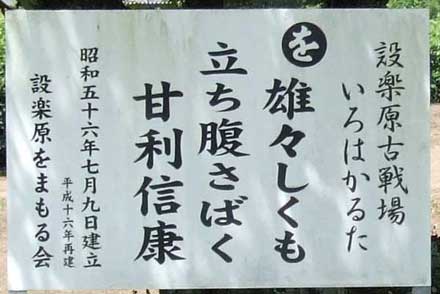 設楽原古戦場
いろはかるた
を
雄々しくも
立ち腹さばく
甘利信康
昭和五十六年七月九日建立
平成十六年再建
設楽原をまもる会